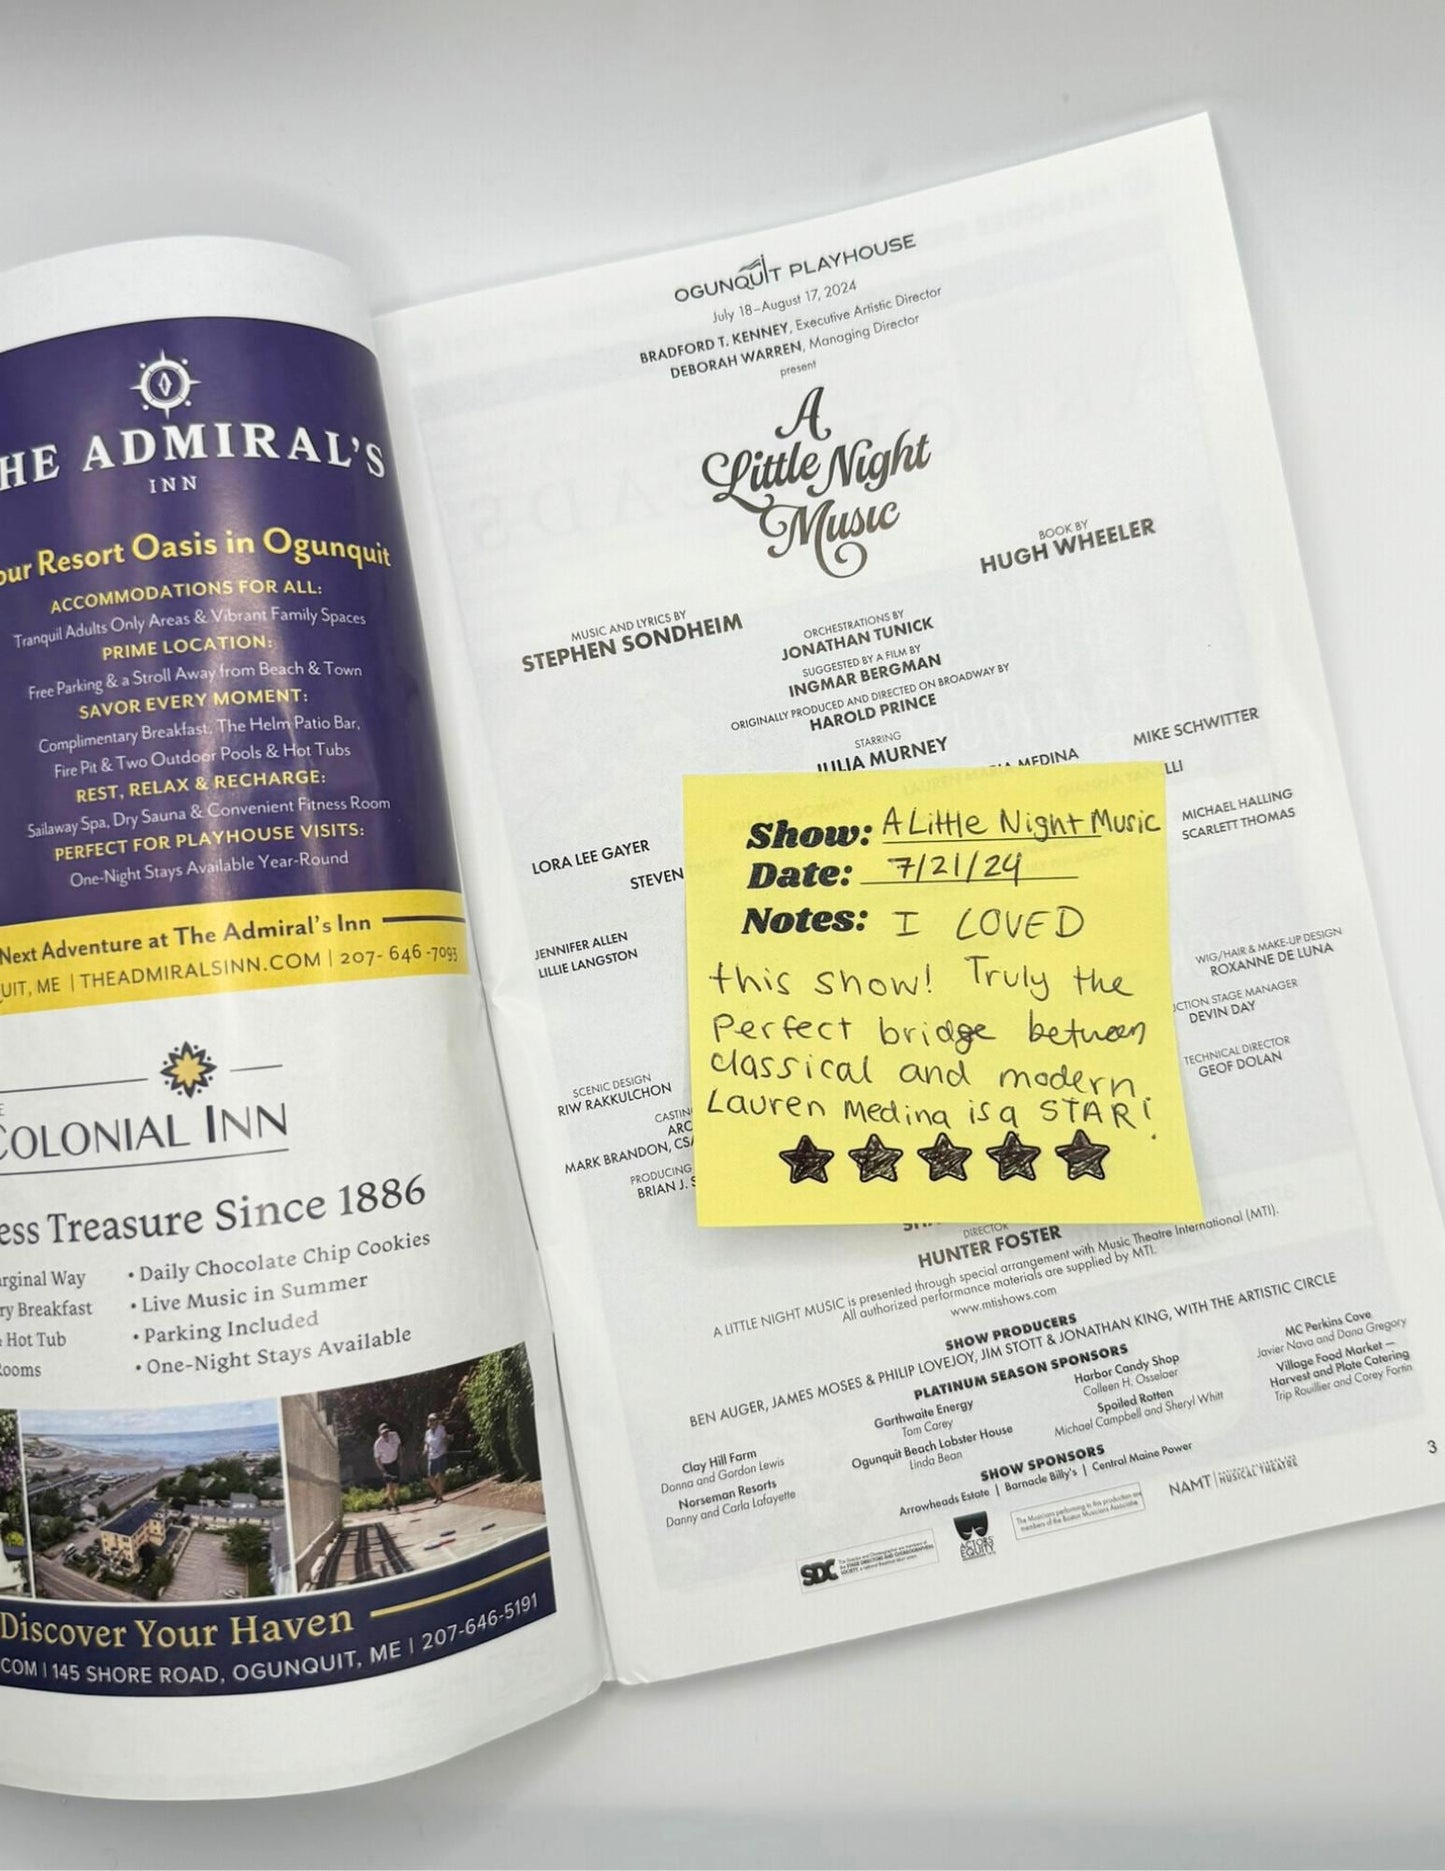 THE ADMIRAL'S
INN
our Resort Oasis in Ogunquit
ACCOMMODATIONS FOR ALL:
Tranquil Adults Only Areas & Vibrant Family Spaces
PRIME LOCATION:
Free Parking & a Stroll Away from Beach & Town
SAVOR EVERY MOMENT:
Complimentary Breakfast, The Helm Patio Bar,
Fire Pit & Two Outdoor Pools & Hot Tubs
REST, RELAX & RECHARGE:
Sailaway Spa, Dry Sauna & Convenient Fitness Room
PERFECT FOR PLAYHOUSE VISITS:
One-Night Stays Available Year-Round
Next Adventure at The Admiral's Inn
UIT, ME | THEADMIRALSINN.COM | 207-646-7093
COLONIAL INN
ess Treasure Since 1886
arginal Way
ry Breakfast
Hot Tub
ooms
• Daily Chocolate Chip Cookies
• Live Music in Summer
• Parking Included
• One-Night Stays Available
Discover Your Haven
COM | 145 SHORE ROAD, OGUNQUIT, ME | 207-646-5191
OGUNQUIT PLAYHOUSE
July 18–August 17, 2024
BRADFORD T. KENNEY, Executive Artistic Director
DEBORAH WARREN, Managing Director
present
A
Little Night
Music
MUSIC AND LYRICS BY
STEPHEN SONDHEIM
BOOK BY
HUGH WHEELER
ORCHESTRATIONS BY
JONATHAN TUNICK
SUGGESTED BY A FILM BY
INGMAR BERGMAN
ORIGINALLY PRODUCED AND DIRECTED ON BROADWAY BY
HAROLD PRINCE
STARRING
JULIA MURNEY
MEDINA
MIKE SCHWITTER
LLI
LORA LEE GAYER
MICHAEL HALLING
STEVEN
SCARLETT THOMAS
JENNIFER ALLEN
LILLIE LANGSTON
WIG/HAIR & MAKE-UP DESIGN
ROXANNE DE LUNA
CTION STAGE MANAGER
DEVIN DAY
SCENIC DESIGN
RIW RAKKULCHON
TECHNICAL DIRECTOR
GEOF DOLAN
CASTIN
ARC
MARK BRANDON, CSA
PRODUCING
BRIAN J. S
Show: A Little Night Music
Date: 7/21/24
Notes: I LOVED
this show! Truly the
perfect bridge between
classical and modern.
Lauren Medina is a STAR!
DIRECTOR
HUNTER FOSTER
A LITTLE NIGHT MUSIC is presented through special arrangement with Music Theatre International (MTI).
All authorized performance materials are supplied by MTI.
www.mtishows.com
SHOW PRODUCERS
BEN AUGER, JAMES MOSES & PHILIP LOVEJOY, JIM STOTT & JONATHAN KING, WITH THE ARTISTIC CIRCLE
PLATINUM SEASON SPONSORS
Clay Hill Farm
Donna and Gordon Lewis
Norseman Resorts
Danny and Carla Lafayette
Garthwaite Energy
Tom Carey
Ogunquit Beach Lobster House
Linda Bean
Harbor Candy Shop
Colleen H. Osselaer
Spoiled Rotten
Michael Campbell and Sheryl Whitt
MC Perkins Cove
Javier Nava and Dana Gregory
Village Food Market —
Harvest and Plate Catering
Trip Rouillier and Corey Fortin
SHOW SPONSORS
Arrowheads Estate | Barnacle Billy's | Central Maine Power
SDC
ACTORS'
EQUITY
The Musicians performing in this production are
members of the Boston Musicians Association.
NAMT
MUSICAL THEATRE
3